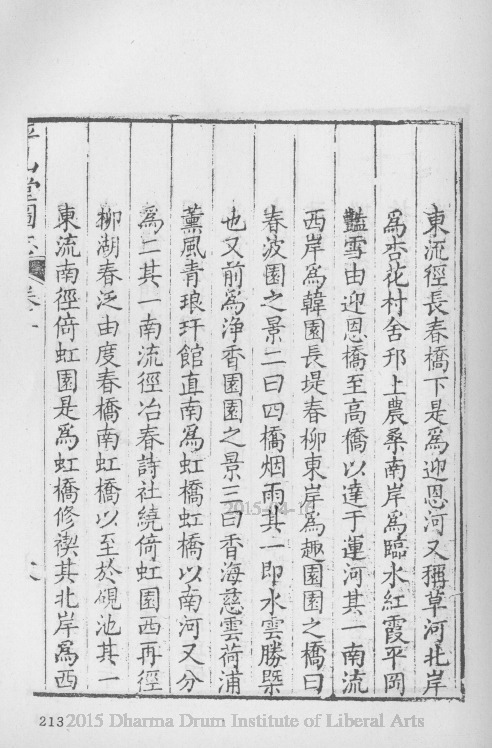 東流徑長春橋下是爲迎恩河又稱草河北岸
爲杏花村舍邗上農桑南岸爲臨水紅霞平岡
豔雪由迎恩橋至高橋以達于運河其一南流
西岸爲韓園長堤春柳東岸爲趣園園之橋曰
春波園之景二曰四橋烟雨其一即水雲勝槩
也又前爲淨香園園之景三曰香海慈雲荷浦
薰風青琅玕館直南爲虹橋虹橋以南河又分
爲二其一南流徑冶春詩社繞倚虹園西再徑
柳湖春泛由度春橋南虹橋以至於硯池其一
東流南徑倚虹園是爲虹橋修禊其北岸爲西
平山堂圖志 卷一
213
2015 Dharma Drum Institute of Liberal Arts